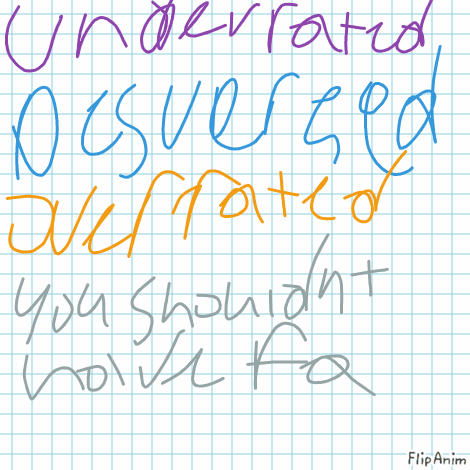 underrated
Desverved
overrated
you shouldnt
have fa
FlipAnim